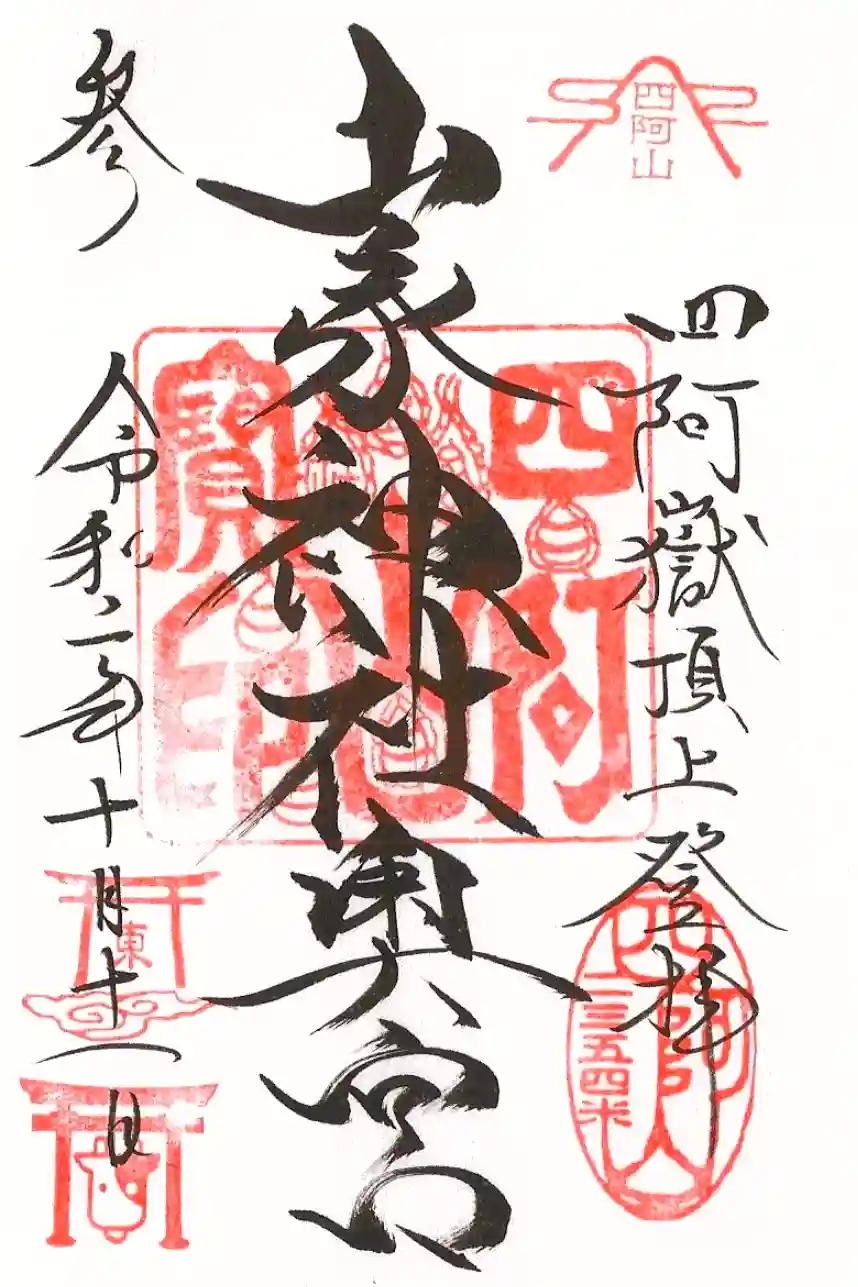 四阿山
四阿嶽頂上登拝
四阿山
二三五四米
山家神社奥宮
四阿山
寶印
参
令和二年十月十一日
東